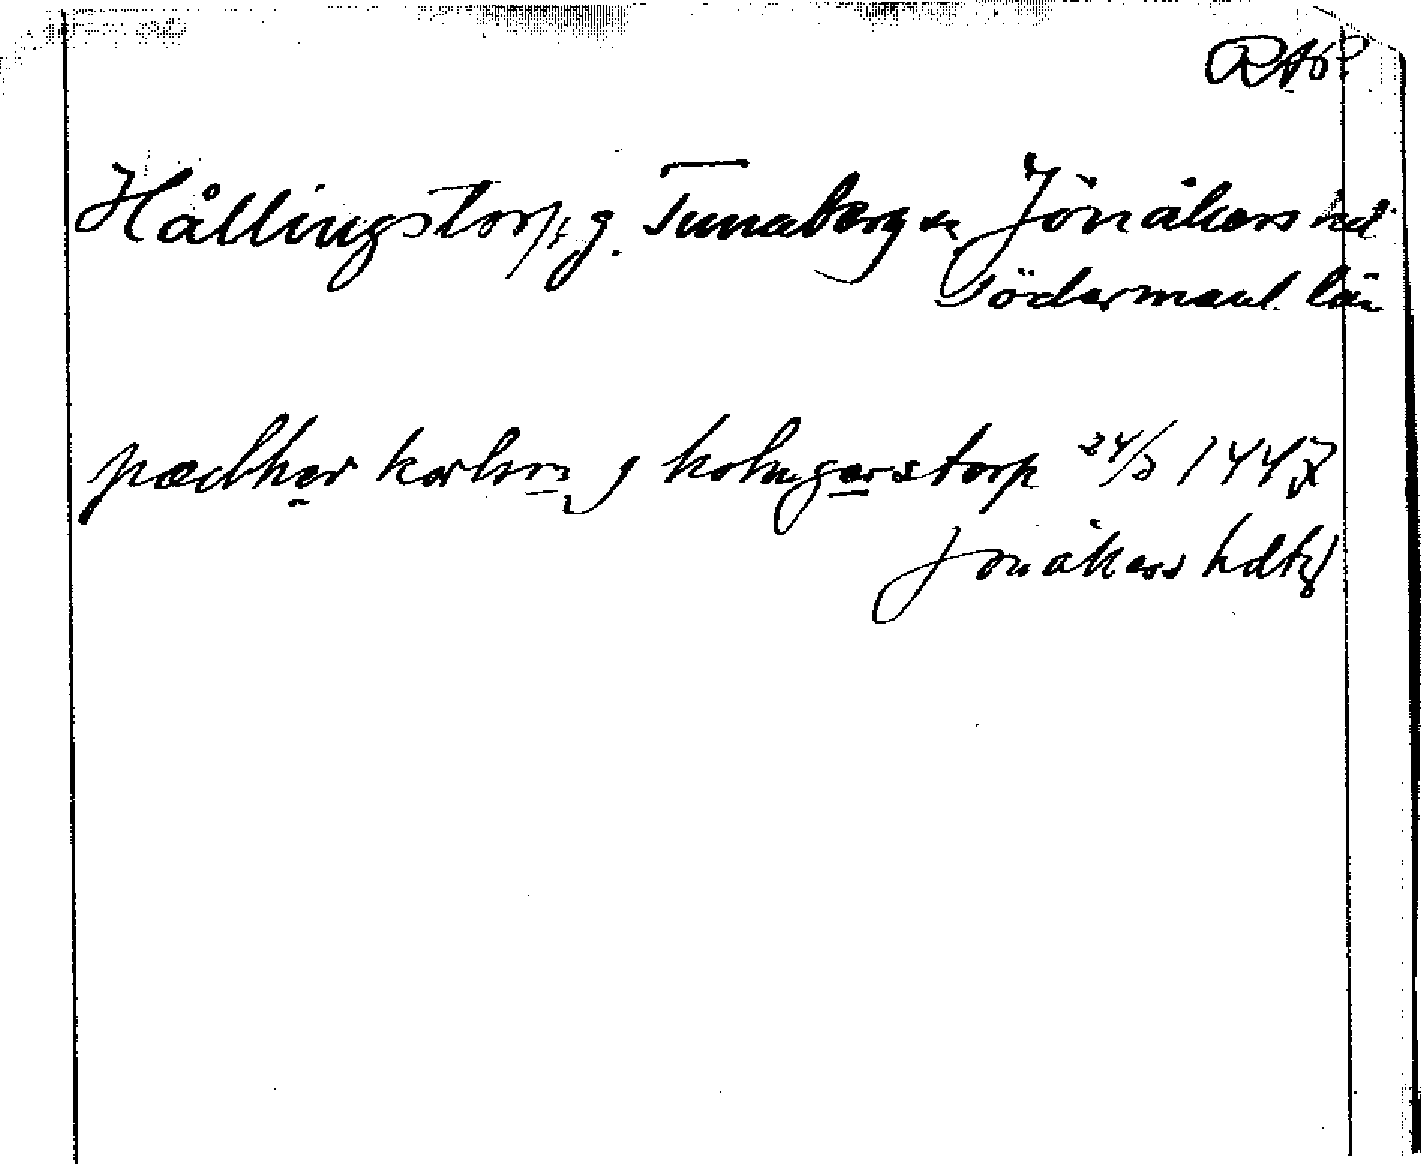 RAP
Hållingstorp, g. Tunaberg sn Jönåkers hd
Södermanl. län
pædher karlson j holmgerstorp 24/3 1447
Jönåkers hdtg